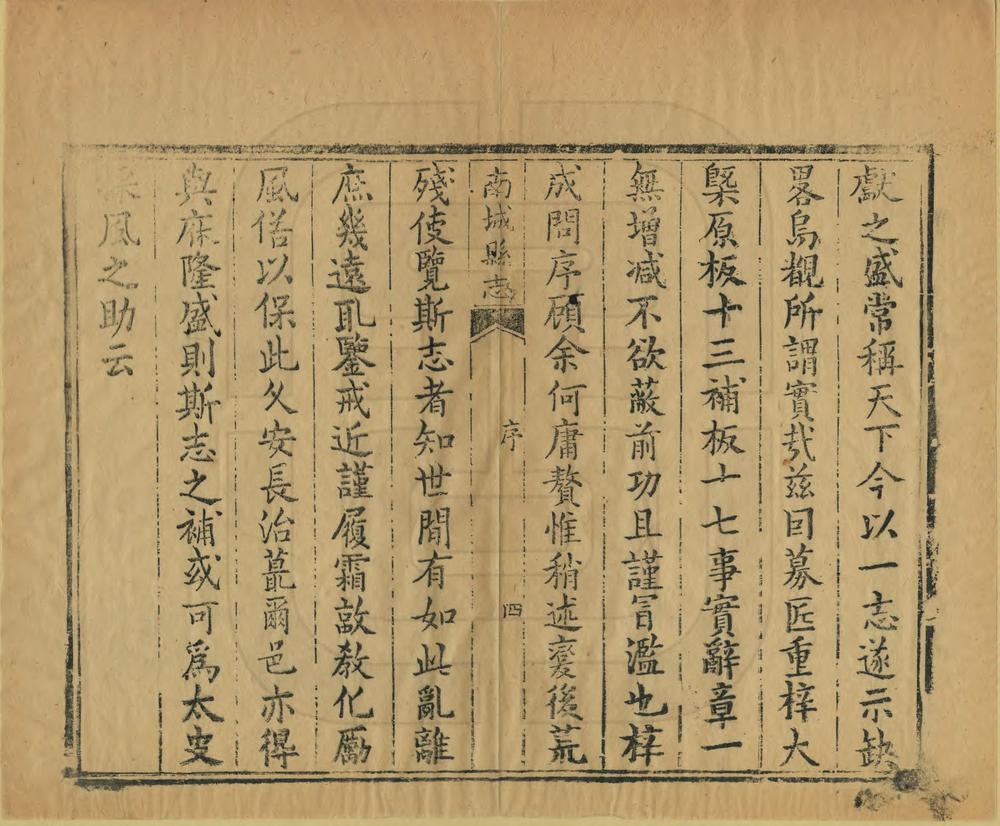 獻之盛常稱天下今以一志遂示缺
畧烏覩所謂實㦲兹囙募匠重梓大
槩原板十三補板十七事實辭章一
無增减不欲蔽前功且謹冒濫也梓
成問序顧余何庸贅惟稍述後荒
南城縣志 序 四
殘使覽斯志者知世間有如此亂離
庶幾遠耴鑒戒近謹履霜敦教化厲
風俗以保此久安長治蕞爾邑亦得
與庥隆盛則斯志之補或可爲太史
采風之助云